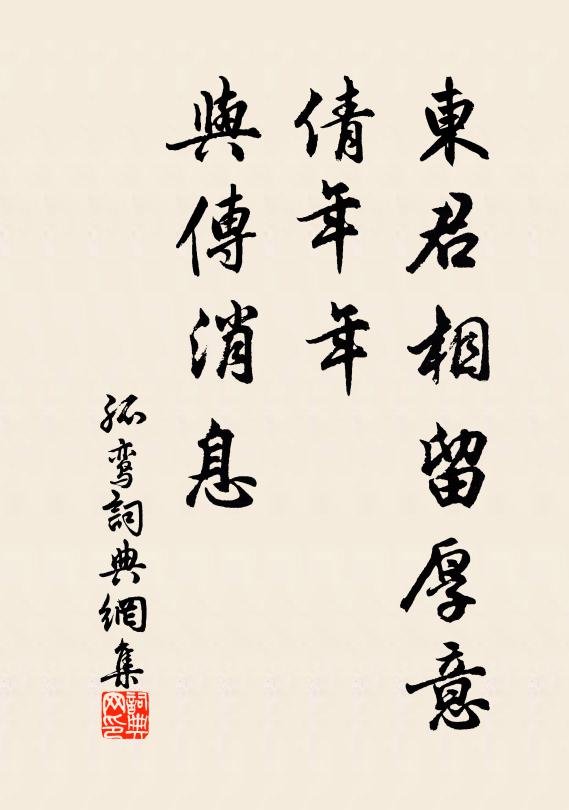 東君相留厚意
倩年年
與傳消息
孤鸾詞典網集
詞典网印